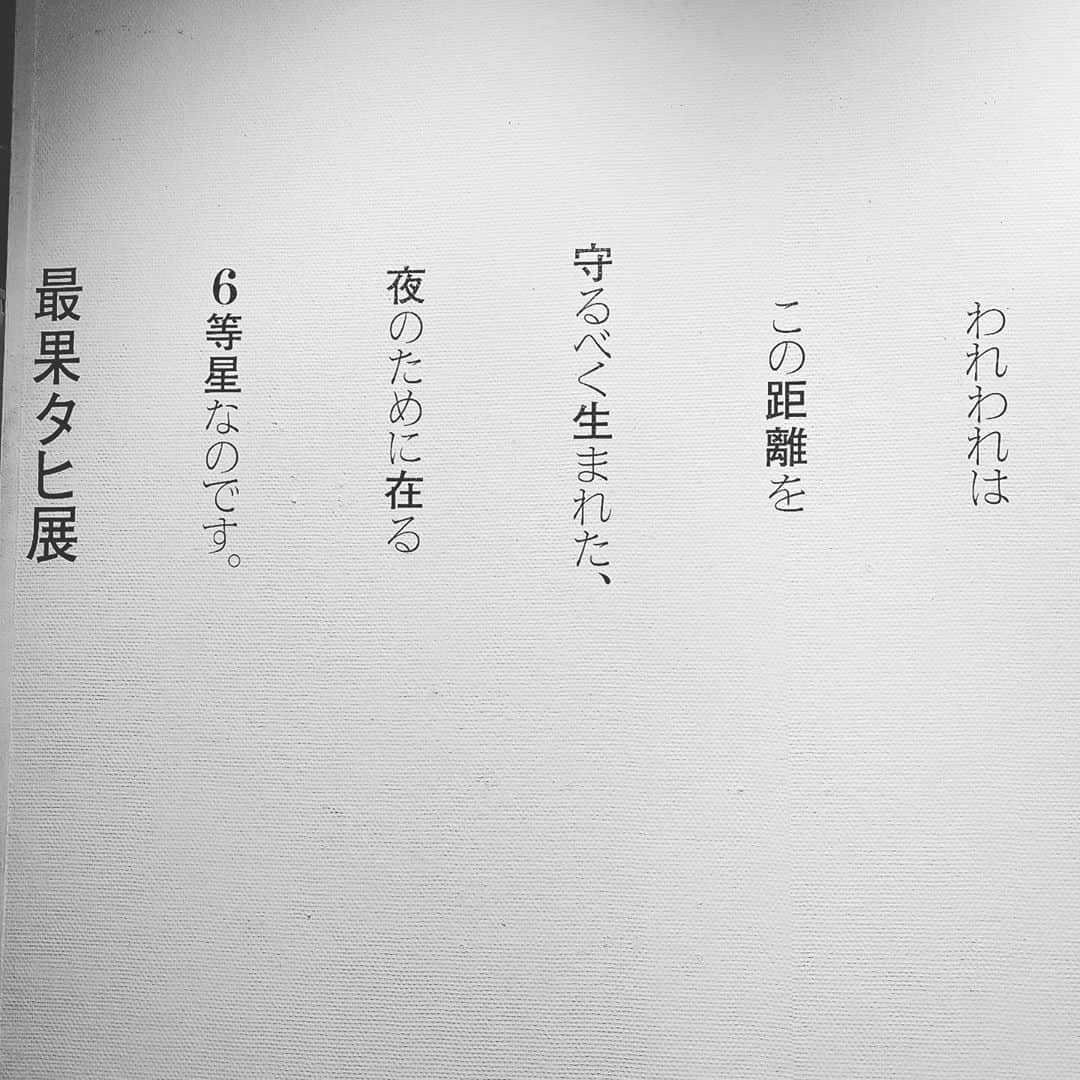 われわれは
この距離を
守るべく生まれた、
夜のために在る
6等星なのです。
最果タヒ展